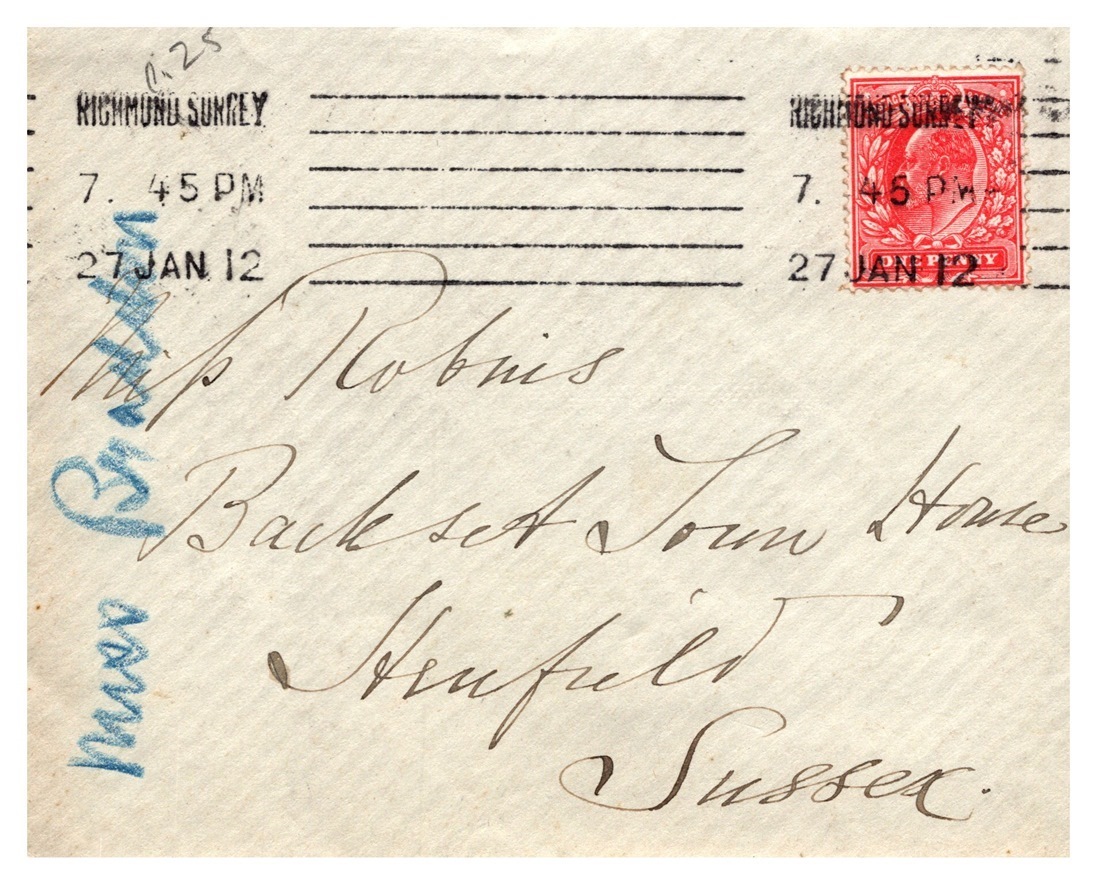 1.25
RICHMOND SURREY
7. 45 PM
27 JAN 12
RICHMOND SURREY
7. 45 PM
27 JAN 12
ONE PENNY
Miss Robins
Backset Town House
Henfield
Sussex.
Miss